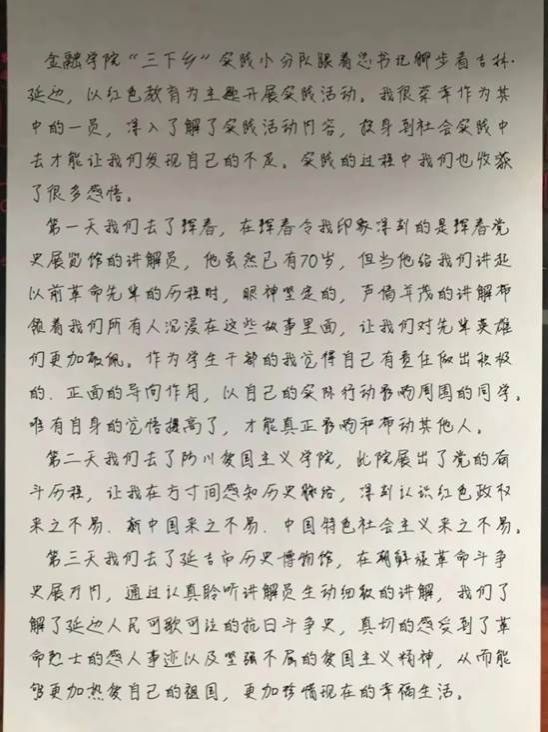 金融学院“三下乡”实践小分队跟着总书记脚步看吉林·
延边，以红色教育为主题开展实践活动。我很荣幸作为其
中的一员，深入了解了实践活动内容，投身到社会实践中
去才能让我们发现自己的不足。实践的过程中我们也收获
了很多感悟。
第一天我们去了珲春，在珲春令我印象深刻的是珲春党
史展览馆的讲解员，他虽然已有70岁，但当他给我们讲起
以前革命先辈的历程时，眼神坚定的，声情并茂的讲解带
领着我们所有人沉浸在这些故事里面，让我们对先辈英雄
们更加敬佩。作为学生干部的我觉得自己有责任做出积极
的、正面的导向作用，以自己的实际行动影响周围的同学。
唯有自身的觉悟提高了，才能真正影响和带动其他人。
第二天我们去了防川爱国主义学院，此院展出了党的奋
斗历程，让我在方寸间感知历史脉络，深刻认识红色政权
来之不易、新中国来之不易、中国特色社会主义来之不易。
第三天我们去了延吉市历史博物馆，在朝鲜族革命斗争
史展厅内，通过认真聆听讲解员生动细致的讲解，我们了
解了延边人民可歌可泣的抗日斗争史，真切的感受到了革
命烈士的感人事迹以及坚强不屈的爱国主义精神，从而能
够更加热爱自己的祖国，更加珍惜现在的幸福生活。